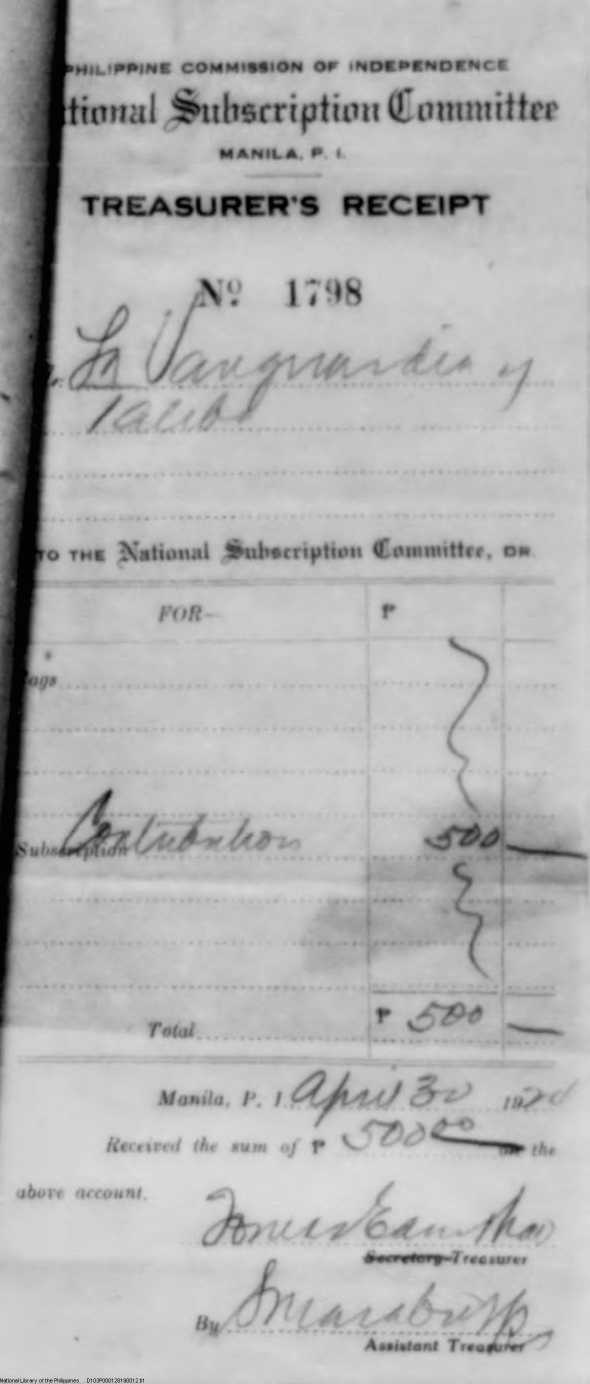 PHILIPPINE COMMISSION OF INDEPENDENCE
tional Subscription Committee
MANILA, P. I.
TREASURER'S RECEIPT
Nº 1798
La Vanguardia y
Taliba
TO THE National Subscription Committee, DR.
FOR— ₱
ags
Subscription Contribution 500 —
Total ₱ 500 —
Manila, P. I. April 30 192
Received the sum of ₱ 500 00 the
above account.
Secretary-Treasurer
By
Assistant Treasurer
National Library of the Philippines